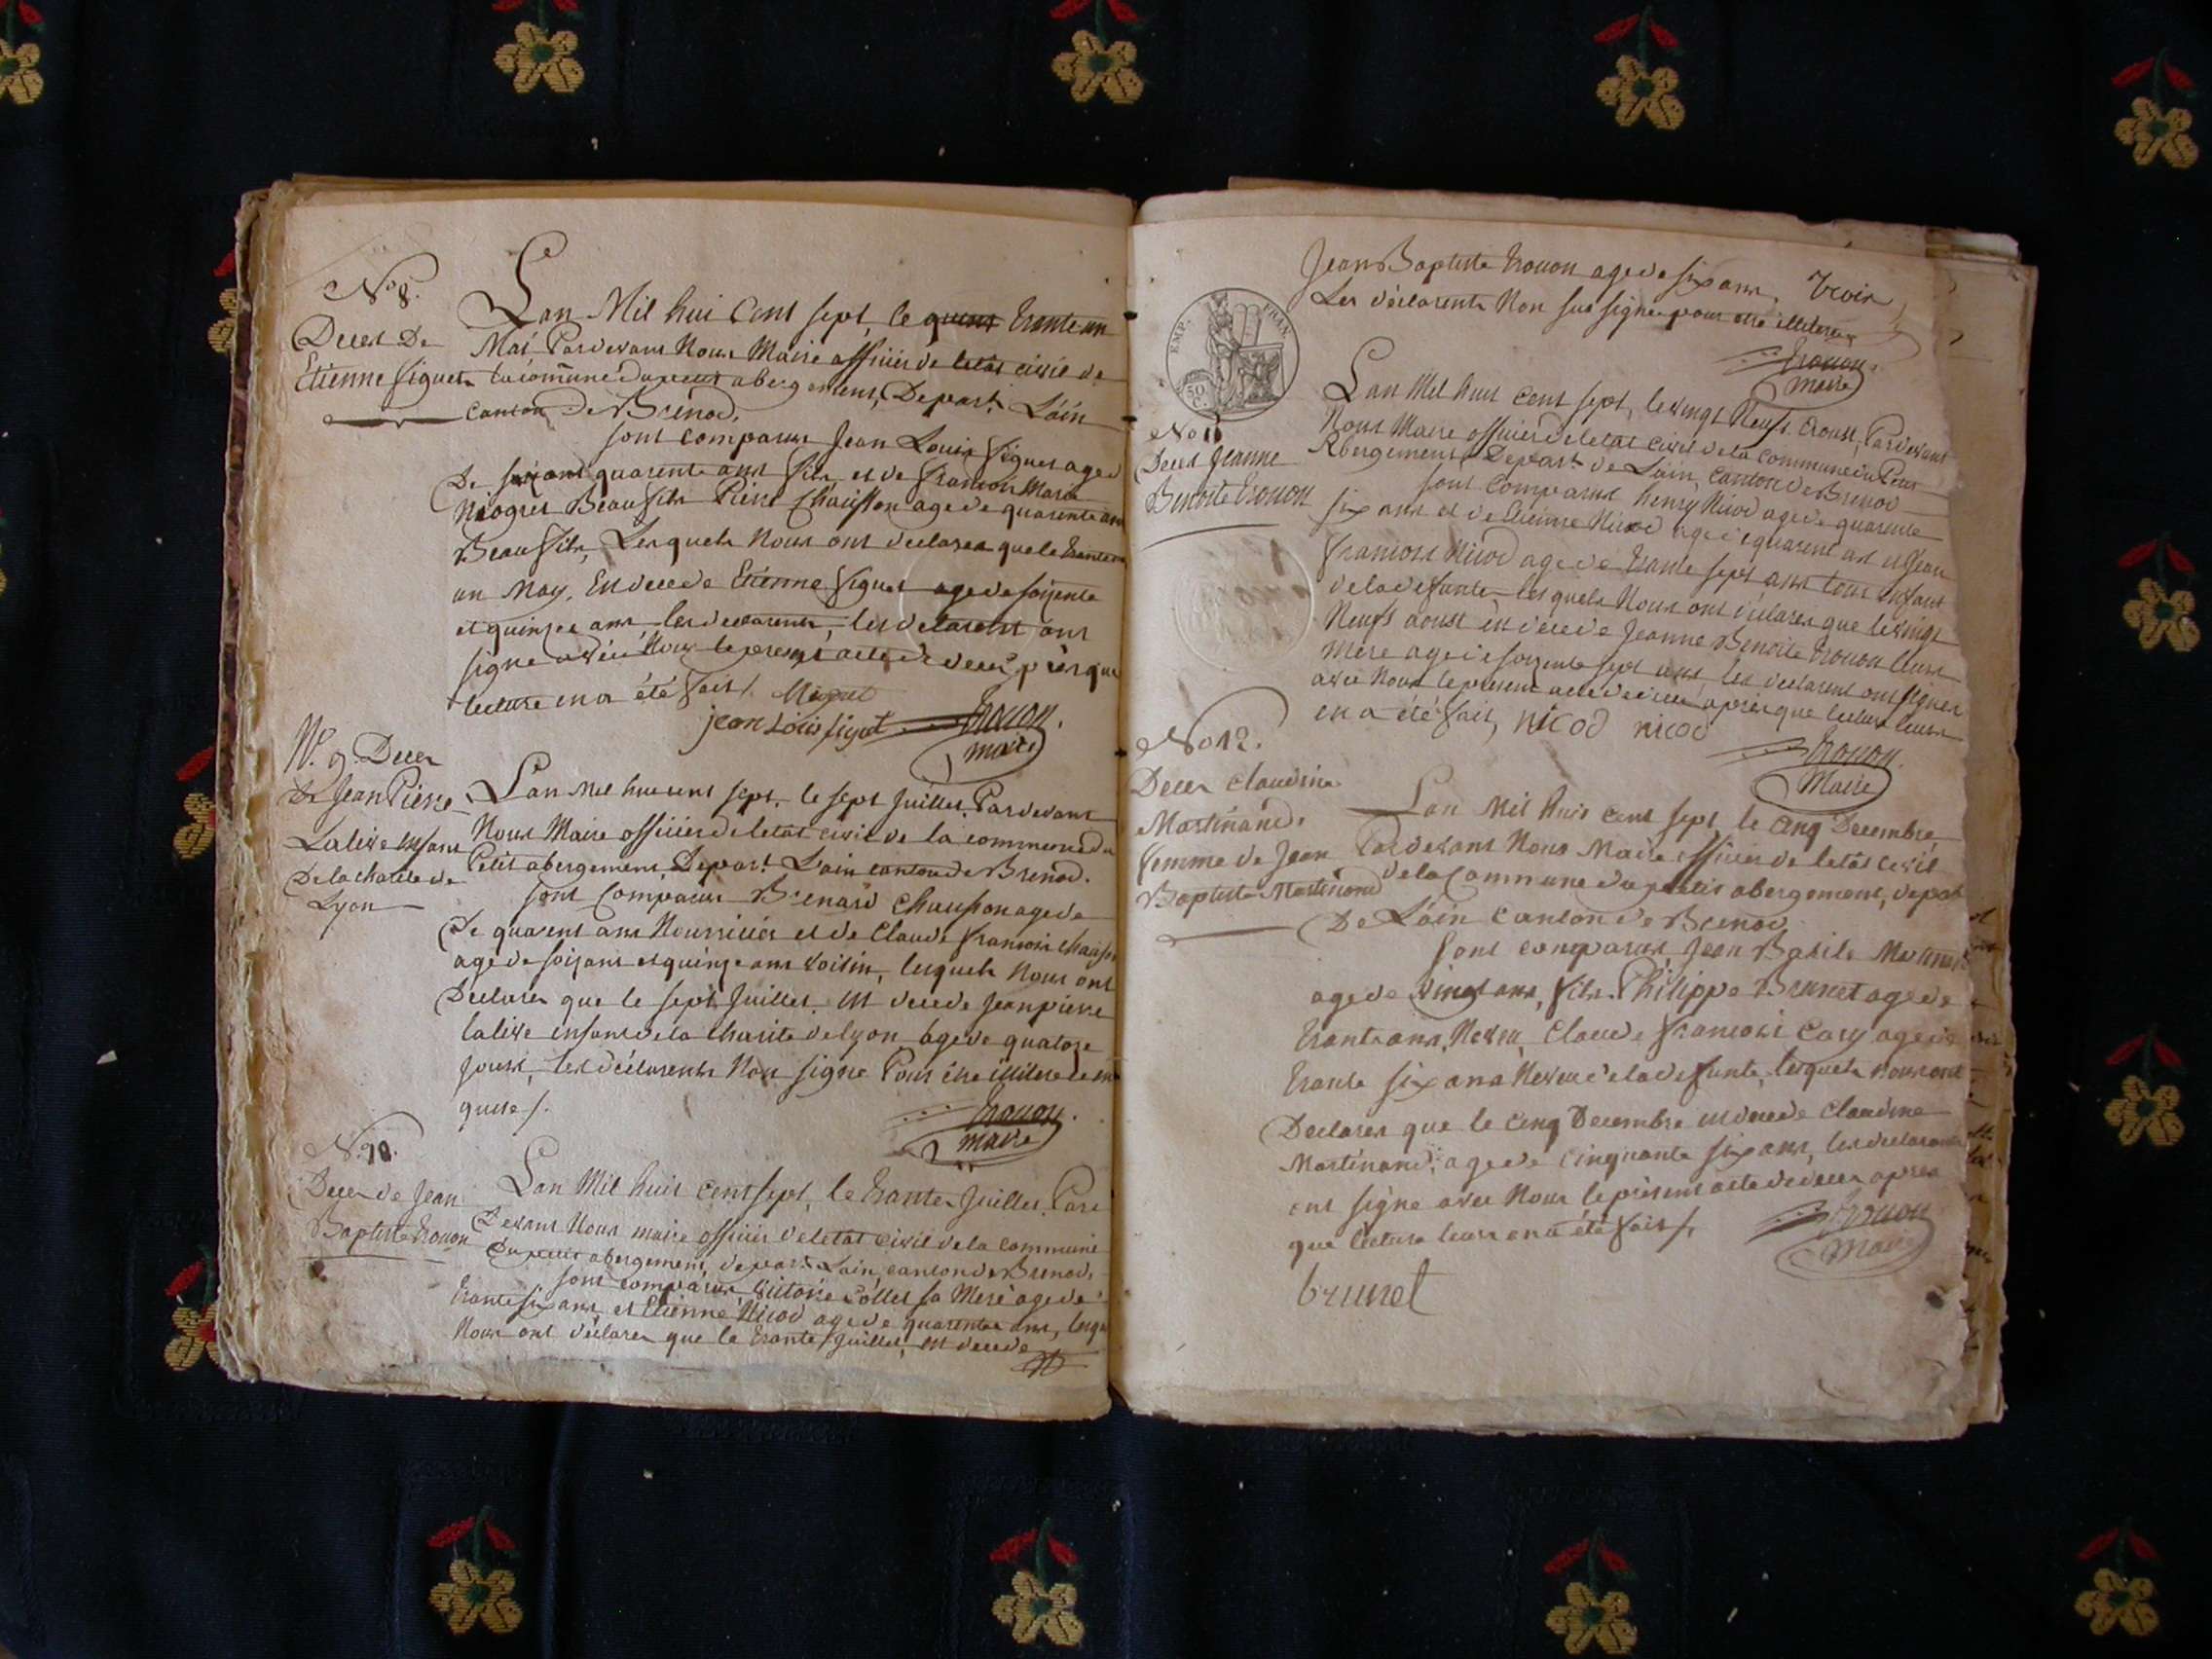 N° 8.
Deces De
Etienne Siguet
Lan Mil hui Cent sept, le trante un
Mai Pardevant Nous Maire officier de letat civil de
la commune du petit abergement, Depart. Láin
canton De Brénod.
sont comparus Jean Louis Siguet aged
De quarente ans fils et de francois Marie
Beaufils Pierre Chaisson age de quarente ans
Beaufils, Lesquels Nous ont declarer que le trante
un May, Est decede Etienne Siguet age de soisente
et quinze ans les declarents, les declarent ont
signe avec Nous le present acte de deces près que
lecture en a été fait /.
jean Lois siguet
maire
N°. 9. Deces
De Jean Pierre
Lalive enfant
De la charite de
Lyon
Lan Mil huit cent sept, le sept Juillet, Pardevant
Nous Maire officier de letat civil de la commune du
Petit abergement, Depart. Lain canton de Brenod.
sont Comparus Benard Chaisson age de
De quarent ans Nourricier et de Claude francois chaisson
age de soisant et quinze ans voisin, lesquels Nous ont
Declarer que le sept Juillet est decede Jean pierre
lalive enfant de la charite de lyon age de quatore
jours, les declarents Non signe Pour être illiterés de
quise /.
maire
N. 10.
Deces de Jean
Baptiste
Lan Mil huit cent sept, le trante Juillet, Par
Devant Nous maire officier de letat civil de la commune
Du petit abergement, depart. Lain, canton de Brenod,
sont comparus, Collet sa Mere age de
trante six ans et Etienne Nicod age de quarente ans, lesqu
Nous ont declarer que le trante Juillet, est decede
Jean Baptiste age de six ans,
Les declarents Non sus signe pour etre illiteres
maire
EMP. FRAN
50 C.
No 11
Deces Jeanne
Benoite
Lan Mil huit cent sept, le vingt Neuf aoust, Pardevant
Nous Maire officier de letat civil de la commune du Petit
Abergement Depart. de Lain, canton de Brenod
sont comparus henry Nicod age de quarente
six ans et de Etienne Nicod age de quarent ans et Jean
francois Nicod age de trante sept ans tous enfant
de la defunte lesquels Nous ont declarer que le vingt
Neuf aoust est decede Jeanne Benoite leur
Mere age de soisente sept ans, les declarent ont signer
avec Nous le present acte de deces après que lecture leur
en a été fait, nicod nicod
Maire
No 12.
Deces Claudine
Martinand.
femme de Jean
Baptiste Martinand
Lan Mil huit cent sept le cinq Decembre
Pardevant Nous Maire officier de letat civil
de la Commune du petit abergement, depar
De Láin canton de Brenod
sont comparus, Jean Basile
age de vingt ans, fils. Philippe Brunet age de
trante ans, Neveu, Claude francois Cary age de
trante six ans Neveu de la defunte, lesquels nous ont
Declarer que le cinq Decembre est decede Claudine
Martinand, age de cinquante six ans, les declarants
ont signe avec Nous le present acte de deces apres
que lecture leur en a été fait /.
maire
brunet